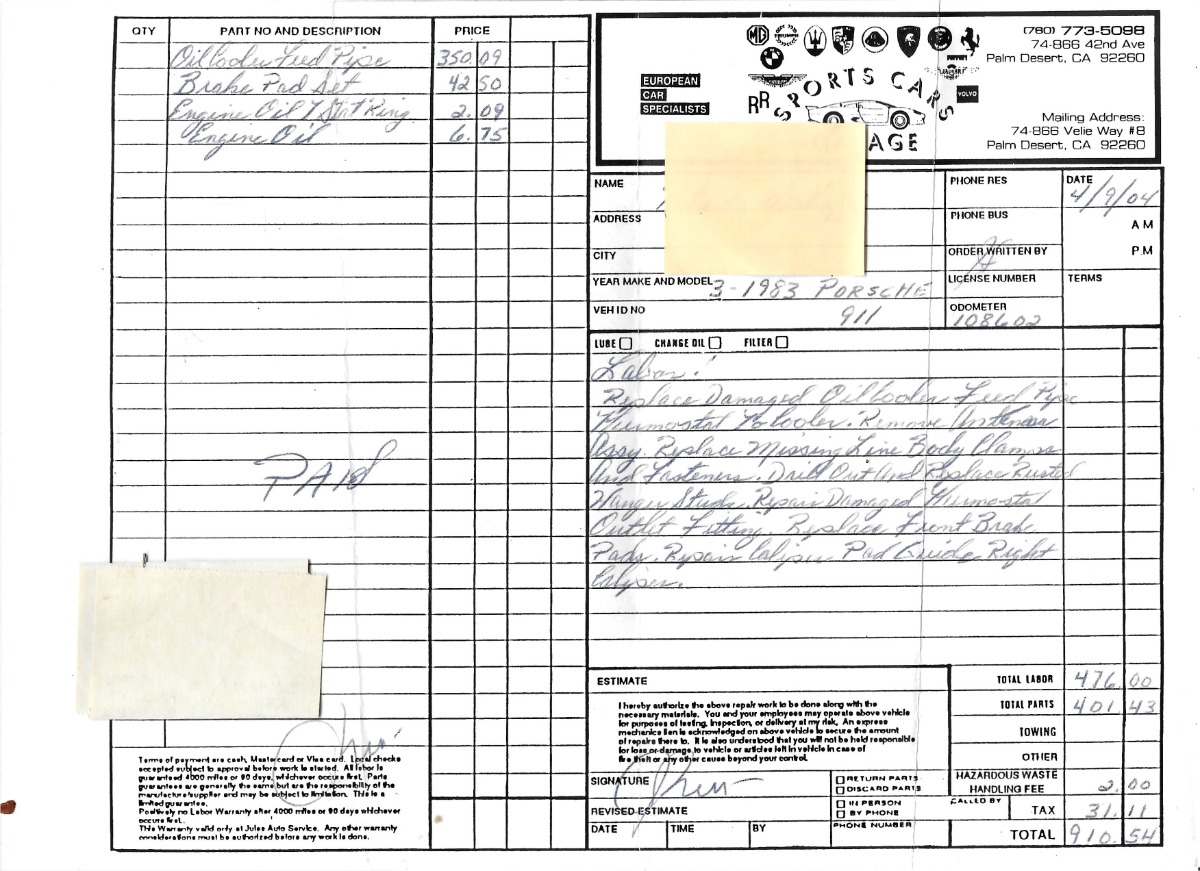 QTY PART NO AND DESCRIPTION PRICE
Oil Cooler Feed Pipe 350.09
Brake Pad Set 42 50
Engine Oil 7 Stat Ring 2.09
Engine Oil 6.75
PAID
Terms of payment are cash, Mastercard or Visa card. Local checks
accepted subject to approval before work is started. All labor is
guaranteed 4000 miles or 90 days, whichever occurs first. Parts
guarantees are generally the same but are the responsibility of the
manufacturer/supplier and may be subject to limitation. This is a
limited guarantee.
Positively no Labor Warranty after 4000 miles or 90 days whichever
occurs first.
This Warranty valid only at Jules Auto Service. Any other warranty
considerations must be authorized before any work is done.
MG TRIUMPH
EUROPEAN
CAR
SPECIALISTS
RR SPORTS CARS
VOLVO
AGE
(760) 773-5098
74-866 42nd Ave
Palm Desert, CA 92260
Mailing Address:
74-866 Velie Way #8
Palm Desert, CA 92260
NAME PHONE RES DATE
4/9/04
ADDRESS PHONE BUS A M
CITY ORDER WRITTEN BY P M
YEAR MAKE AND MODEL 3-1983 PORSCHE LICENSE NUMBER TERMS
VEH ID NO 911 ODOMETER
108602
LUBE CHANGE OIL FILTER
Labor:
Replace Damaged Oil Cooler Feed Pipe
Thermostat To Cooler. Remove Antenna
Assy. Replace Missing Line Body Clamps
And Fasteners. Drill Out And Replace Rusted
Hanger Studs. Repair Damaged Thermostat
Outlet Fitting. Replace Front Brake
Pads. Repair Caliper Pad Guide Right
Caliper.
ESTIMATE TOTAL LABOR 476.00
TOTAL PARTS 401.43
TOWING
OTHER
I hereby authorize the above repair work to be done along with the
necessary materials. You and your employees may operate above vehicle
for purposes of testing, inspection, or delivery at my risk. An express
mechanics lien is acknowledged on above vehicle to secure the amount
of repairs there to. It is also understood that you will not be held responsible
for loss or damage to vehicle or articles left in vehicle in case of
fire theft or any other cause beyond your control.
SIGNATURE RETURN PARTS HAZARDOUS WASTE
DISCARD PARTS HANDLING FEE 2.00
REVISED ESTIMATE IN PERSON CALLED BY TAX 31.11
BY PHONE
DATE TIME BY PHONE NUMBER TOTAL 910.54